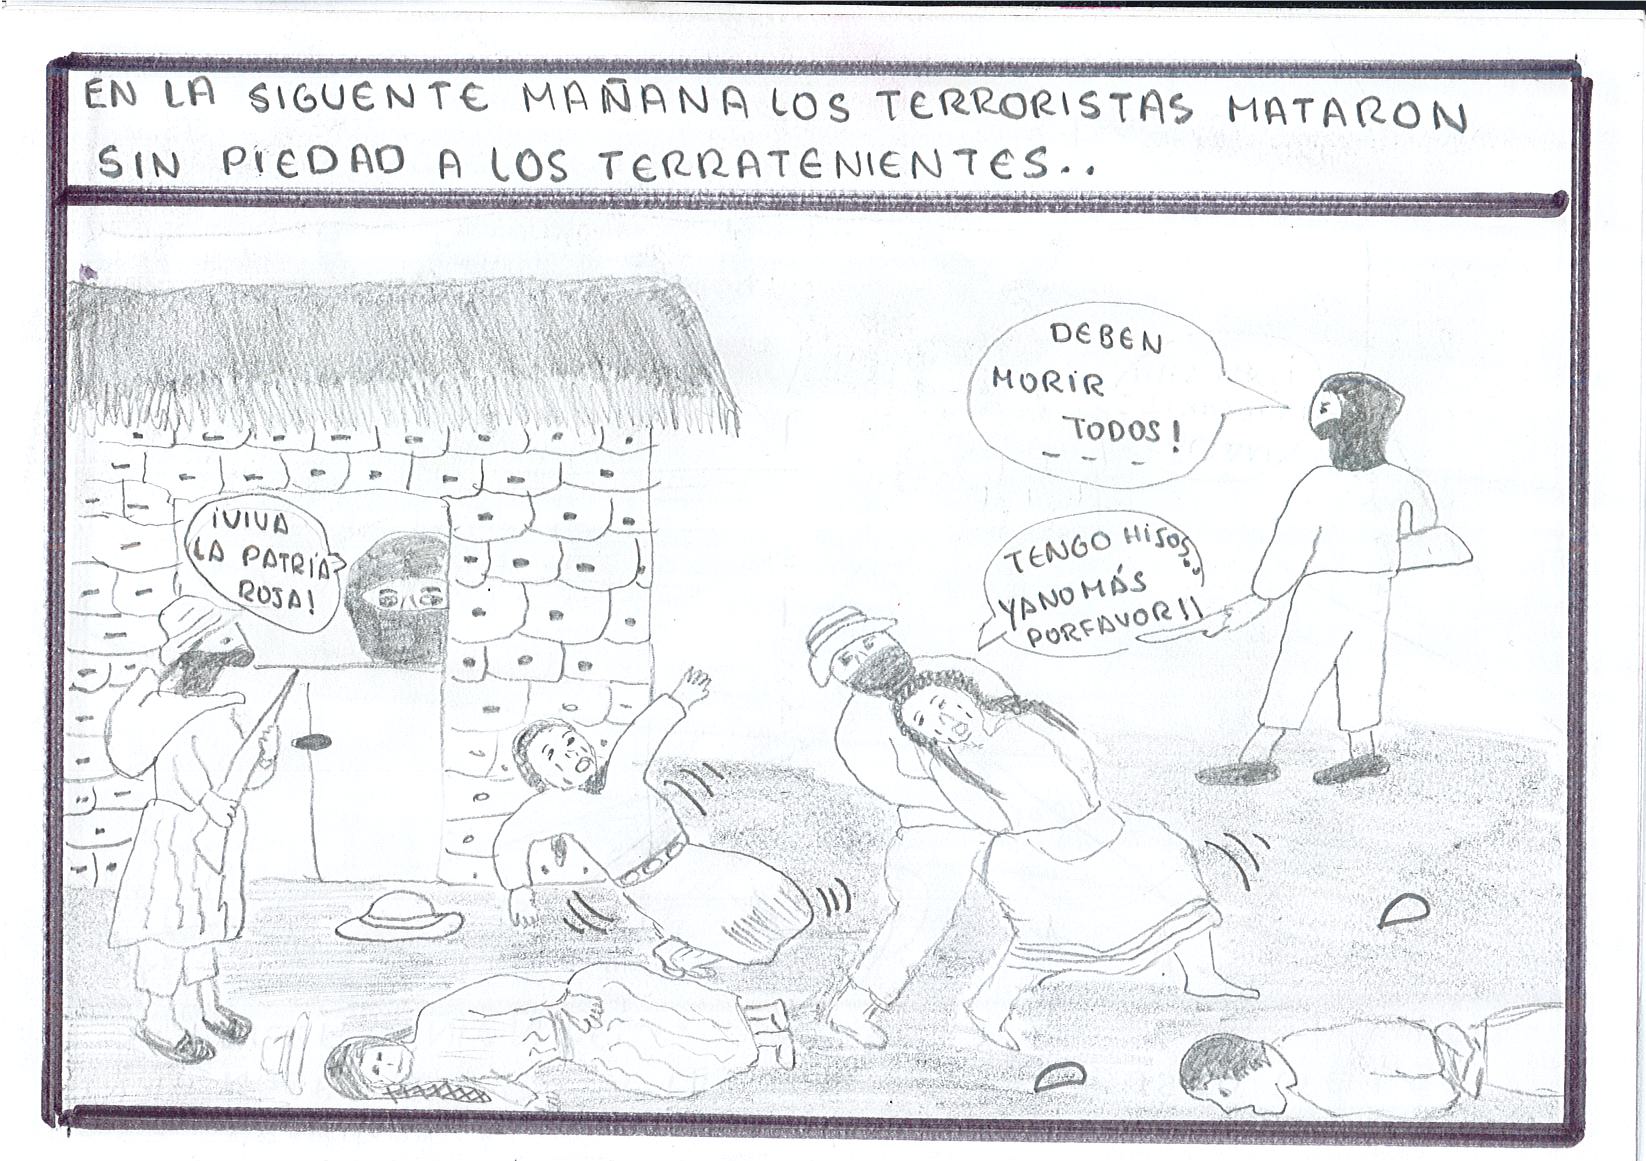 EN LA SIGUENTE MAÑANA LOS TERRORISTAS MATARON
SIN PIEDAD A LOS TERRATENIENTES..
DEBEN
MORIR
TODOS!
¡VIVA
LA PATRIA
ROJA!
TENGO HIJOS
YA NO MÁS
PORFAVOR!!